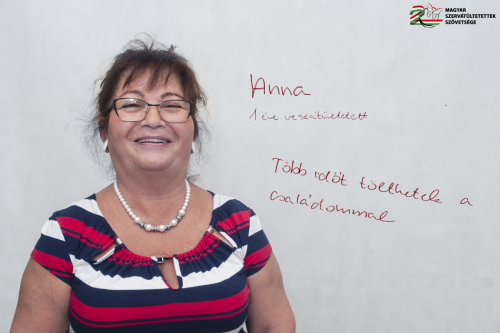 MAGYAR
SZERVÁTÜLTETETTEK
SZÖVETSÉGE
Anna
1 éve veseátültetett
Több időt tölthetek a
családommal